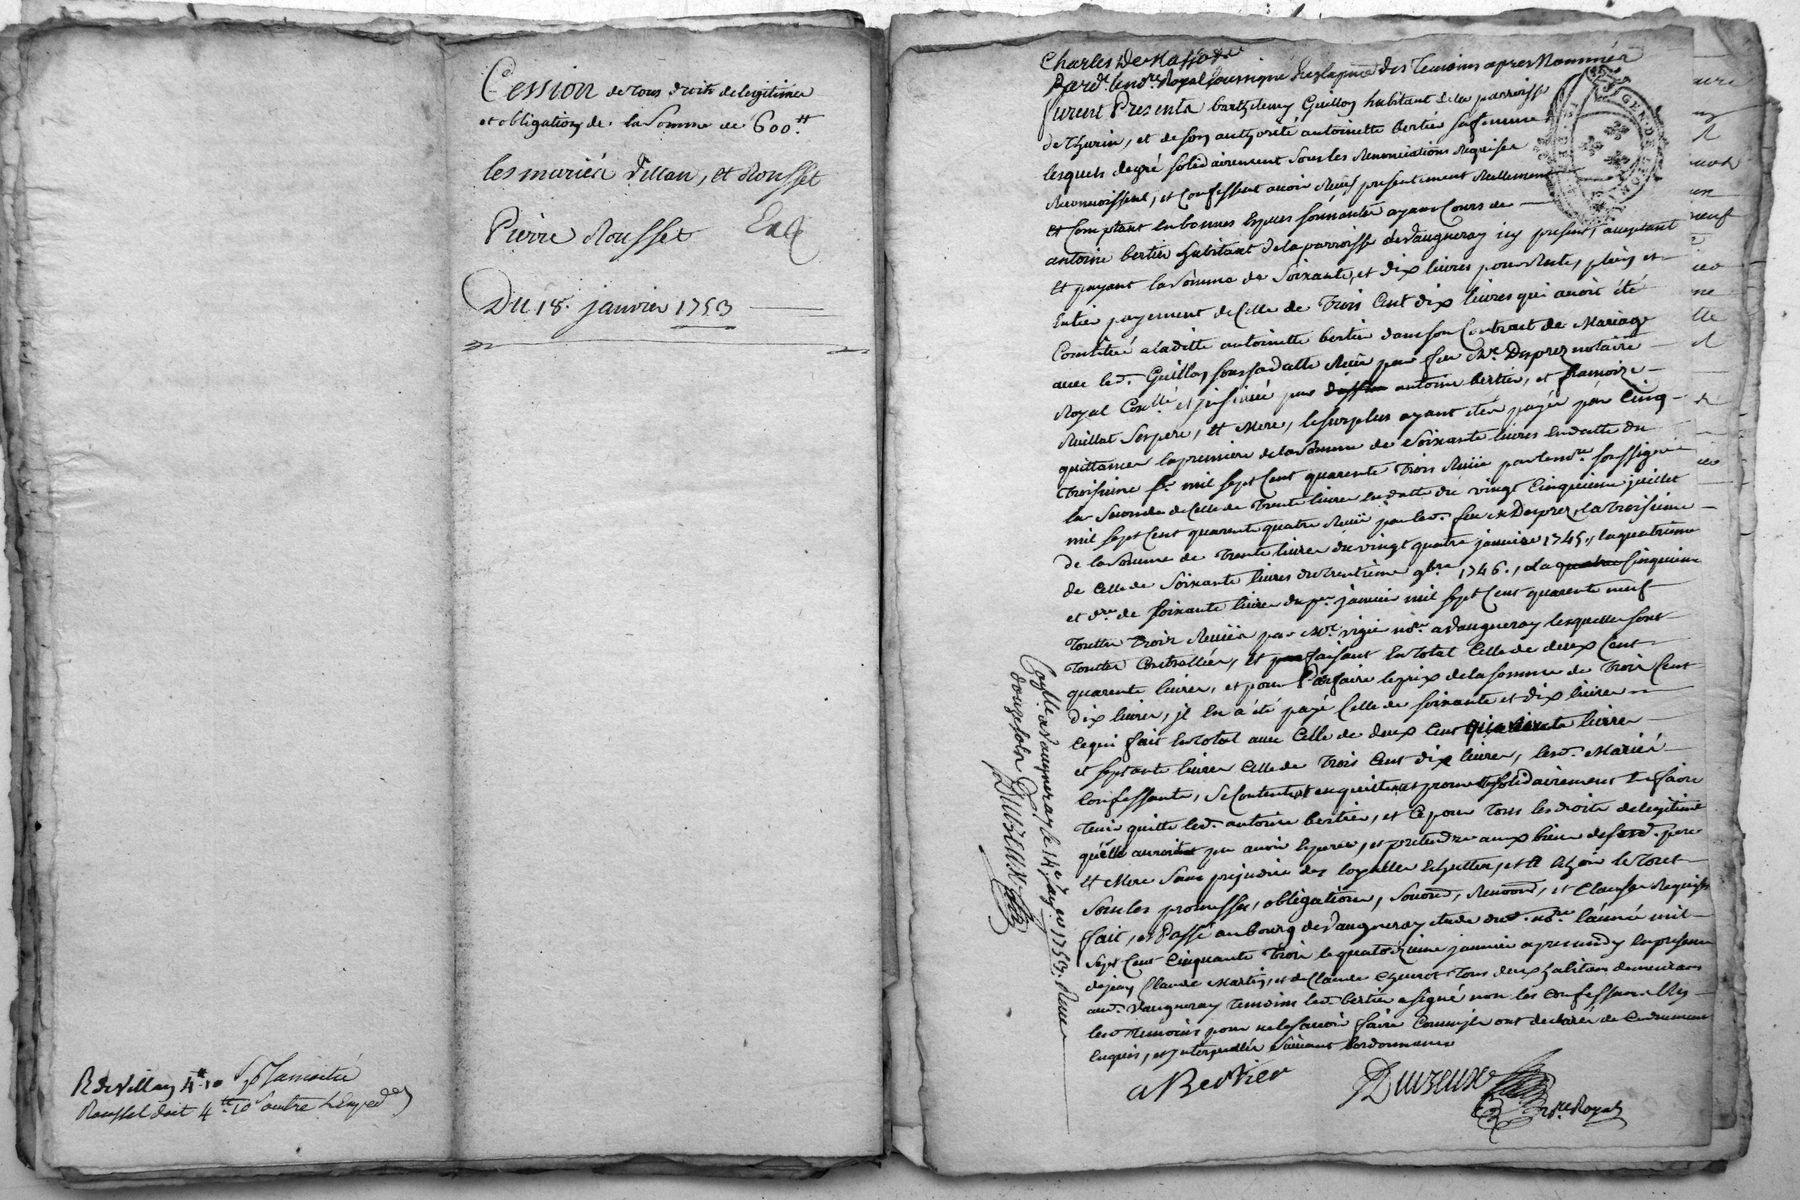 Cession de tous droits de legitimes
et obligation de la somme de 600 ₶
les mariés Villan, et Rousset
Pierre Rousset
Du 18. janvier 1753
R de Villan 4 ₶ 10 s
Rousset doit 4 ₶ 10 s outre
Charles De
Pard. le nore. Royal soussigné des temoins apres Nommés
furent Presents barthelemy Guillon habitant de la parroisse
de Thurin, et de son authorité antoinette bertier sa femme
lesquels de gré solidairement sous les Renonciations Requises
Reconnoissent, et Confessent avoir Receu presentement Reellement
et Comptant en bonnes Especes sonnantes ayant Cours de
antoine bertier habitant de la parroisse de Vaugneray icy present, acceptant
et payant la somme de Soixante, et dix livres pour Reste, plein et
Entier payement de Celle de Trois Cent dix livres qui avoit été
Constituée a laditte antoinette bertier dans son Contrat de Mariage
avec led. Guillon sous sa datte Receu par feu Me. Desprez notaire
Royal Con.llé et insinué par antoine bertier, et
ses pere, et Mere, le surplus ayant été payé par Cinq
quittances la premiere de la somme de Soixante livres en datte du
Troisieme mil sept Cent quarente Trois Receüe par le nore. soussigné
la Seconde de Celle de Trente livres en datte du vingt Cinquieme juillet
mil sept Cent quarente quatre Receü par led. feu Me Desprez, la Troisieme
de la somme de Trente livres du vingt quatre janvier 1745, la quatrieme
de Celle de Soixante livres du Trentieme 9bre 1746., et la quatre Cinquieme
et dre. de Soixante livres du per. janvier mil sept Cent quarente neuf
Touttes Trois Receües par Me. vigie nore. a Vaugneray lesquelles sont
Touttes Controllées, et faisant En total Celle de deux Cent
quarente livres, et pour Parfaire le prix de la somme de Trois Cent
dix livres, il en a été payé Celle de soixante et dix livres
Ce qui fait En total avec Celle de deux Cent quarente livres
et septante livres Celle de Trois Cent dix livres, lesd. Mariés
Confessants, se Contentent en quittent et promettent solidairement En faire
Tenir quitte led. antoine bertier, et Ce pour Tous les droits de legitime
qu'elle auroit pu avoir Esperer, et pretendre aux biens de sesd. pere
et Mere sans prejudice des loyalles Echuttes, et
Sous les promesses, obligations, Renond, et Clauses Requises
fait, et Passé au bourg de Vaugneray etude dud. nore. l'année mil
Sept Cent Cinquante Trois le quatorzieme janvier apres midy En presence
de jean Claude Martin, et de Claude Tous deux habitans demeurans
aud. Vaugneray Temoins led. bertier a signé non les Confessants Ny
les Temoins pour ne le sçavoir faire Comme ils ont declaré de Ce duement
Enquis, et Interpellés suivant l'ordonnance
a Bertier
Duvzeux
nre Royal
GEN. DE LYON
Conllé a Vaugneray le 14 janv 1753. Receu
douze sols
Duvzeux